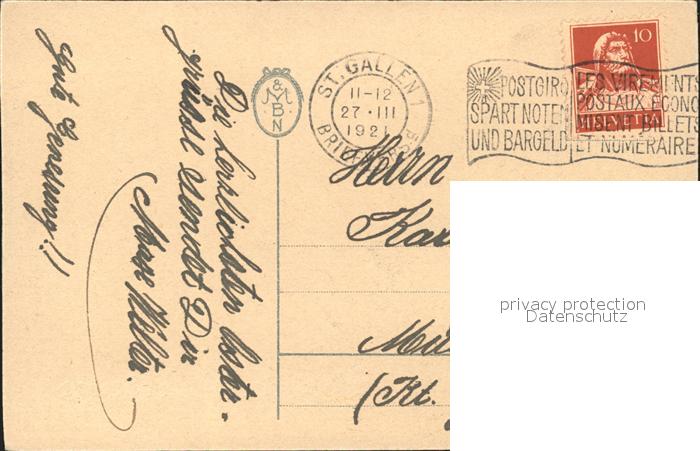 Die herzlichsten Oster-
grüsse sendet Dir
Max Weber.
Gute Genesung!!
M & B N
ST. GALLEN 1
11-12
27·III
1921
BRIEF
POSTGIRO
SPART NOTEN
UND BARGELD
LES VIREMENTS
POSTAUX ECONO
MISENT BILLETS
ET NUMERAIRE
10
HELVETIA
Herrn
Kar
Mu
(Kt.
privacy protection
Datenschutz